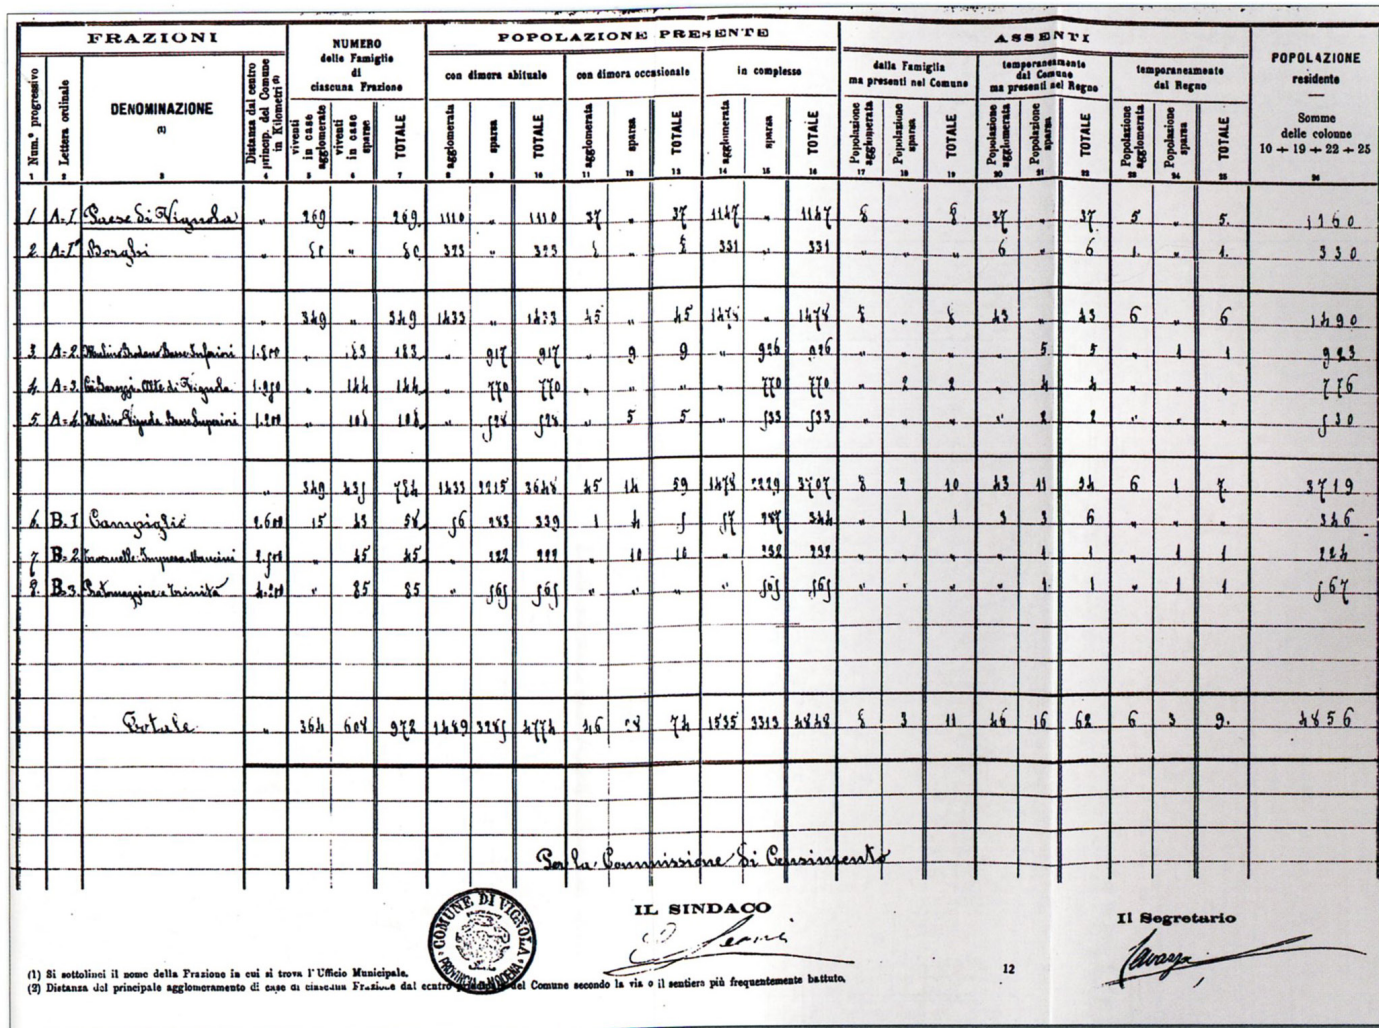 FRAZIONI
NUMERO
delle Famiglie
di
ciascuna Frazione
POPOLAZIONE PRESENTE
con dimora abituale
con dimora occasionale
in complesso
ASSENTI
dalla Famiglia
ma presenti nel Comune
temporaneamente
dal Comune
ma presenti nel Regno
temporaneamente
dal Regno
POPOLAZIONE
residente
Somme
delle colonne
10 + 19 + 22 + 25
Num.º progressivo
Lettera ordinale
DENOMINAZIONE
(1)
Distanza dal centro
princip. del Comune
in Kilometri (2)
viventi
in case
agglomerate
viventi
in case
sparse
TOTALE
agglomerata
sparsa
TOTALE
agglomerata
sparsa
TOTALE
agglomerata
sparsa
TOTALE
Popolazione
agglomerata
Popolazione
sparsa
TOTALE
Popolazione
agglomerata
Popolazione
sparsa
TOTALE
Popolazione
agglomerata
Popolazione
sparsa
TOTALE
1 2 3 4 5 6 7 8 9 10 11 12 13 14 15 16 17 18 19 20 21 22 23 24 25 26
1. A=I. Paese di Vignola " 269 " 269. 1110 " 1110 37 " 37 1147 " 1147 8 " 8 37 " 37 5 " 5. 1160
2. Borghi " 80 " 80. 323 " 323 8 " 8 331 " 331 " " " 6 " 6 1. " 1. 330
" 349 " 349 1433 " 1433 45 " 45 1478 " 1478 8 " 8 43 " 43 6 " 6 1490
3. A=2. 1.800 " 183 183. " 917 917 " 9 9 " 926 926 " " " " 5. 5 " 1 1 923
4. A=3. " 144 144. " 770 770 " " " " 770 770 " 2 2 " 4 4 " " " 776
5. A=4. 1.200 " 108 108. " 528 528 " 5 5 " 533 533 " " " " 2 2 " " " 530
" 349 435 784 1433 2215 3648 45 14 59 1478 2229 3707 8 2 10 43 11 54 6 1 7. 3719
6. B=I Campiglio 2.600 15 43 58. 56 283 339 1 4 5 57 287 344 " 1 1 3 3 6 " " " 346
7 B=2. 2.500 " 45 45. " 222 222 " 10 10 " 232 232 " " " " 1 1 " 1 1 224
8. B=3. Pratomaggiore e Trinità 4.200 " 85 85 " 565 565 " " " " 565 565 " " " " 1. 1 " 1 1 567
Totale " 364 608 972 1489 3285 4774 46 28 74 1535 3313 4848 8 3 11 46 16 62 6 3 9. 4856
Per la Commissione di Censimento
COMUNE DI VIGNOLA
PROVINCIA MODENA
IL SINDACO
Il Segretario
12
(1) Si sottolinei il nome della Frazione in cui si trova l'Ufficio Municipale.
(2) Distanza del principale agglomeramento di case di ciascuna Frazione dal centro principale del Comune secondo la via o il sentiero più frequentemente battuto.